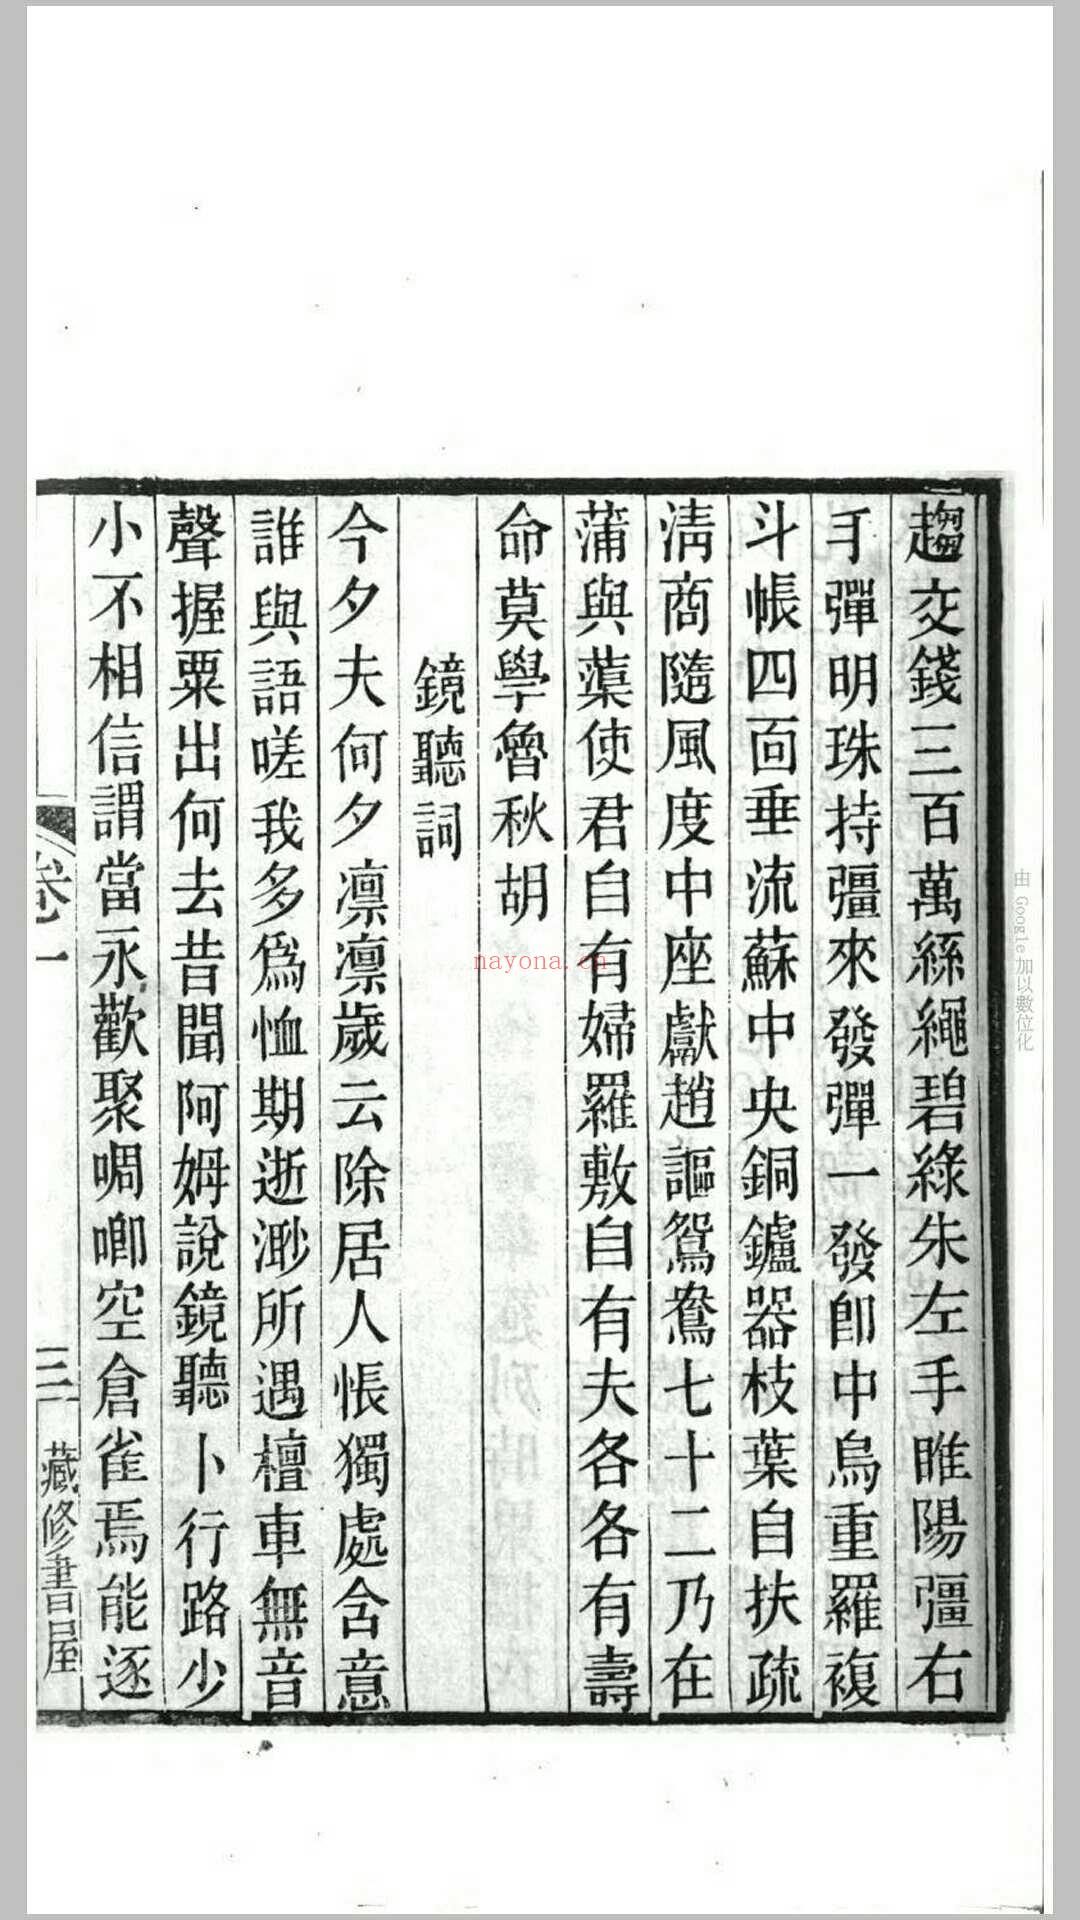 趨交錢三百萬絲繩碧綠朱左手睢陽彊右
手彈明珠持彊來發彈一發卽中烏重羅複
斗帳四面垂流蘇中央銅鑪器枝葉自扶疏
淸商隨風度中座獻趙謳鴛鴦七十二乃在
蒲與蕖使君自有婦羅敷自有夫各各有壽
命莫學魯秋胡
鏡聽詞
今夕夫何夕凛凛歲云除居人悵獨處含意
誰與語嗟我多爲恤期逝渺所遇檀車無音
聲握粟出何去昔聞阿姆說鏡聽卜行路少
小不相信謂當永歡聚啁啾空倉雀焉能逐
卷一
三
藏修書屋
由 Google 加以數位化
nayona.cn